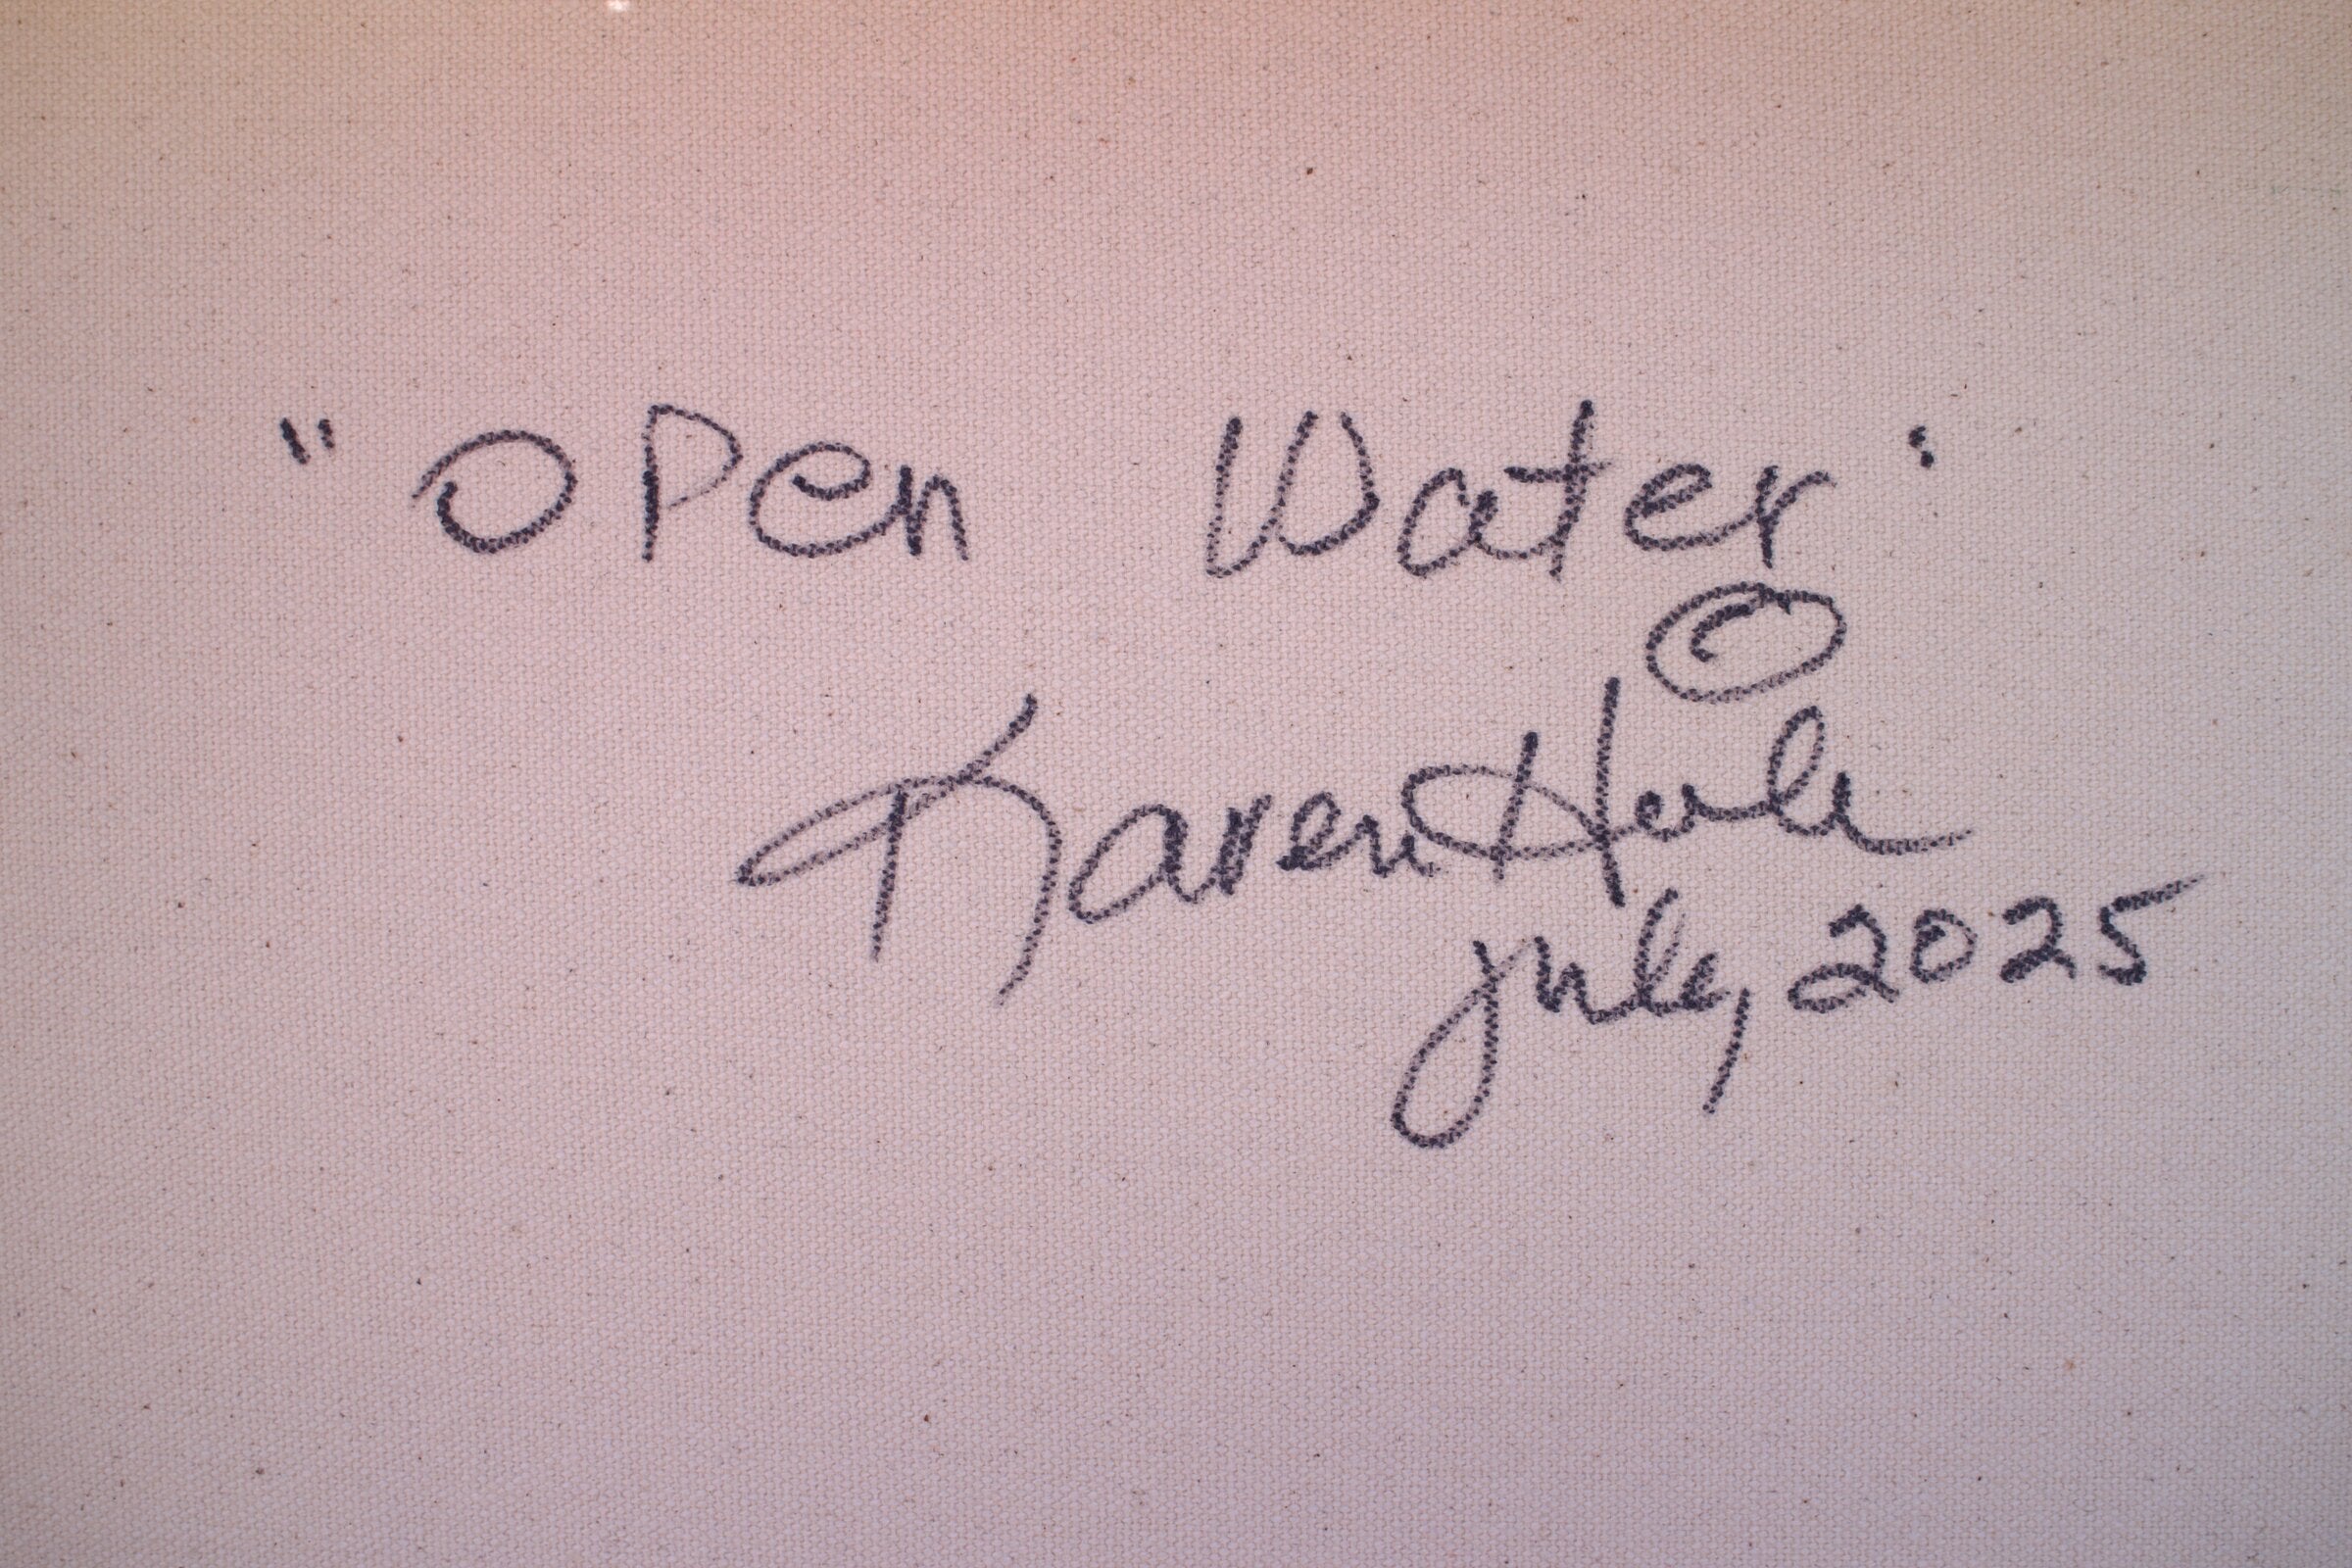 "Open Water"
© Karen Hale
July, 2025